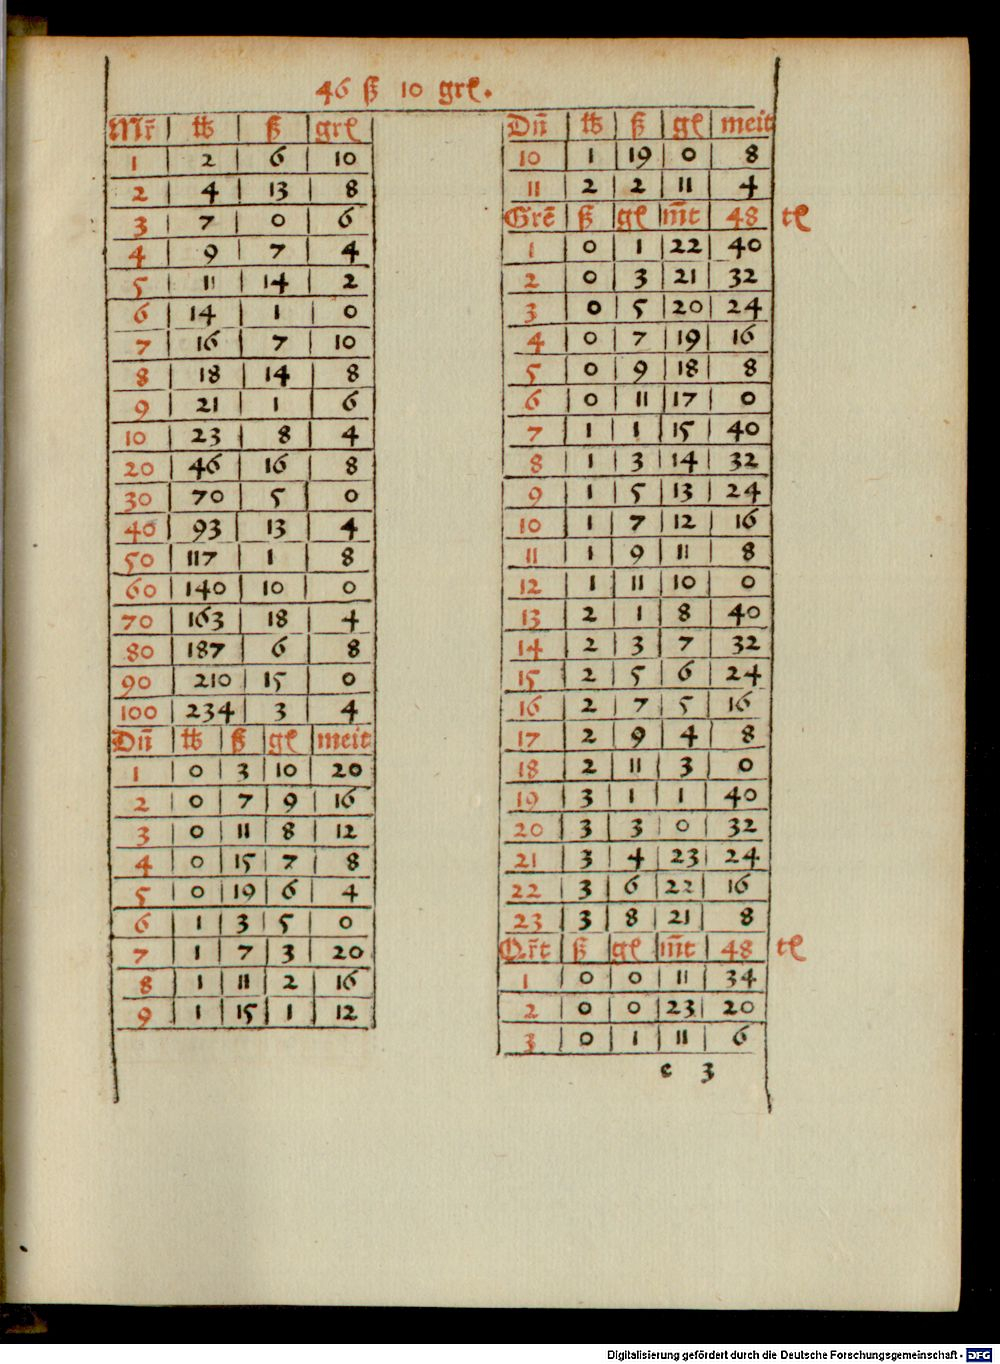 46 ß 10 grl.
Mr̄ | lb | ß | grl
1 | 2 | 6 | 10
2 | 4 | 13 | 8
3 | 7 | 0 | 6
4 | 9 | 7 | 4
5 | 11 | 14 | 2
6 | 14 | 1 | 0
7 | 16 | 7 | 10
8 | 18 | 14 | 8
9 | 21 | 1 | 6
10 | 23 | 8 | 4
20 | 46 | 16 | 8
30 | 70 | 5 | 0
40 | 93 | 13 | 4
50 | 117 | 1 | 8
60 | 140 | 10 | 0
70 | 163 | 18 | 4
80 | 187 | 6 | 8
90 | 210 | 15 | 0
100 | 234 | 3 | 4
Dn̄ | lb | ß | gl | meit
1 | 0 | 3 | 10 | 20
2 | 0 | 7 | 9 | 16
3 | 0 | 11 | 8 | 12
4 | 0 | 15 | 7 | 8
5 | 0 | 19 | 6 | 4
6 | 1 | 3 | 5 | 0
7 | 1 | 7 | 3 | 20
8 | 1 | 11 | 2 | 16
9 | 1 | 15 | 1 | 12
Dn̄ | lb | ß | gl | meit
10 | 1 | 19 | 0 | 8
11 | 2 | 2 | 11 | 4
Grē | ß | gl | m̄t | 48 tl
1 | 0 | 1 | 22 | 40
2 | 0 | 3 | 21 | 32
3 | 0 | 5 | 20 | 24
4 | 0 | 7 | 19 | 16
5 | 0 | 9 | 18 | 8
6 | 0 | 11 | 17 | 0
7 | 1 | 1 | 15 | 40
8 | 1 | 3 | 14 | 32
9 | 1 | 5 | 13 | 24
10 | 1 | 7 | 12 | 16
11 | 1 | 9 | 11 | 8
12 | 1 | 11 | 10 | 0
13 | 2 | 1 | 8 | 40
14 | 2 | 3 | 7 | 32
15 | 2 | 5 | 6 | 24
16 | 2 | 7 | 5 | 16
17 | 2 | 9 | 4 | 8
18 | 2 | 11 | 3 | 0
19 | 3 | 1 | 1 | 40
20 | 3 | 3 | 0 | 32
21 | 3 | 4 | 23 | 24
22 | 3 | 6 | 22 | 16
23 | 3 | 8 | 21 | 8
Qr̄t | ß | gl | m̄t | 48 tl
1 | 0 | 0 | 11 | 34
2 | 0 | 0 | 23 | 20
3 | 0 | 1 | 11 | 6
c 3
Digitalisierung gefördert durch die Deutsche Forschungsgemeinschaft - DFG